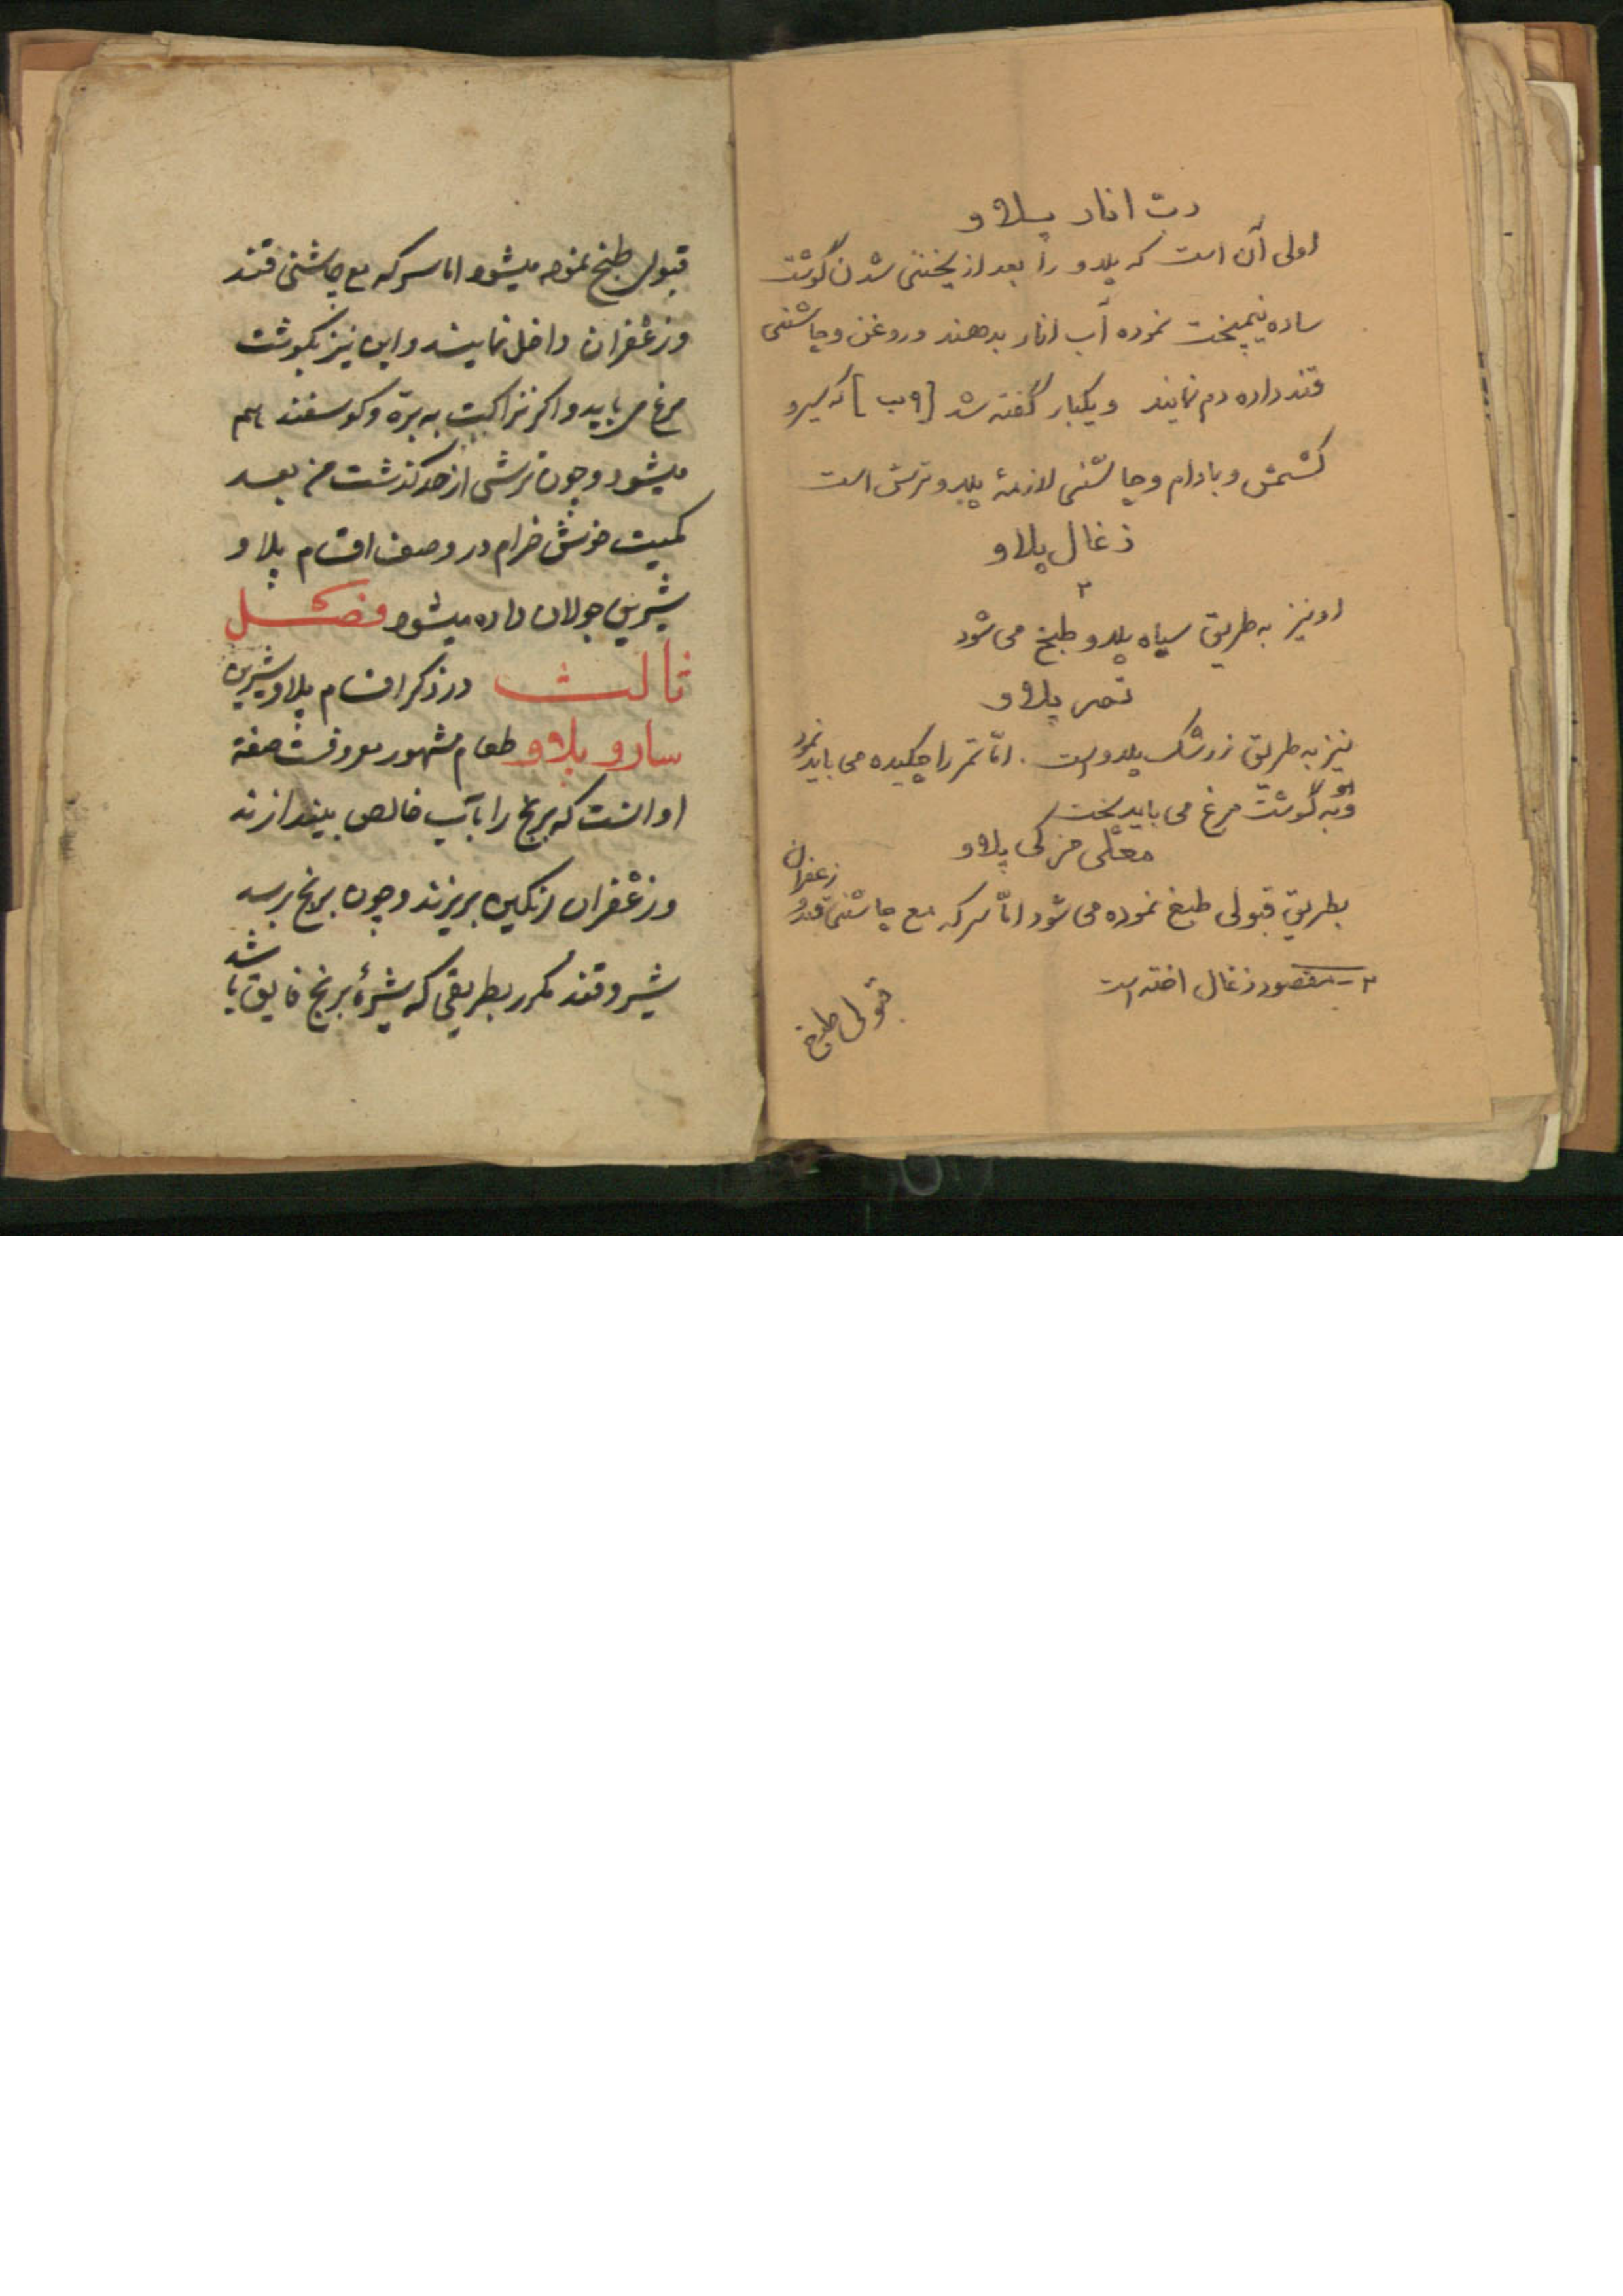 رت انار پلاو
اولی آن است که پلاو را بعد از یخنی شدن گوشت
ساده نیمپخت نموده آب انار بدهند و روغن و چاشنی
قند داده دم نمایند و یکبار گفته شد [۹ب] که سیر و
کشمش و بادام و چاشنی لازمهٔ پلاو ترش است
زغال پلاو
۲
او نیز به طریق سیاه پلاو طبخ می شود
تمر پلاو
نیز به طریق زرشک پلاو است . امّا تمر را چکیده می باید نمود
و به گوشت مرغ می باید پخت
معلّی مزکی پلاو
بطریق قبولی طبخ نموده می شود امّا سرکه مع چاشنی قند و زعفران
۲ - مقصود زغال اخته است
قبولی طبخ
قبولی طبخ نموده میشود اما سرکه مع چاشنی قند
و زعفران داخل نمایند و این نیز بکوشت
مرغ می باید و اکر نزاکت به بره و کوسفند هم
میشود و چون ترشی از حد کذشت من بعد
کمیت خوش خرام در وصف اقسام پلاو
شیرین جولان داده میشود فصل
ثالث در ذکر اقسام پلاو شیرین
سارو پلاو طعام مشهور معروفست صفة
او انست که برنج را بآب خالص بیندازند
و زعفران رنکین بریزند و چون برنج برسد
شیر و قند مکرر بطریقی که شیرهٔ برنج فایق باشد